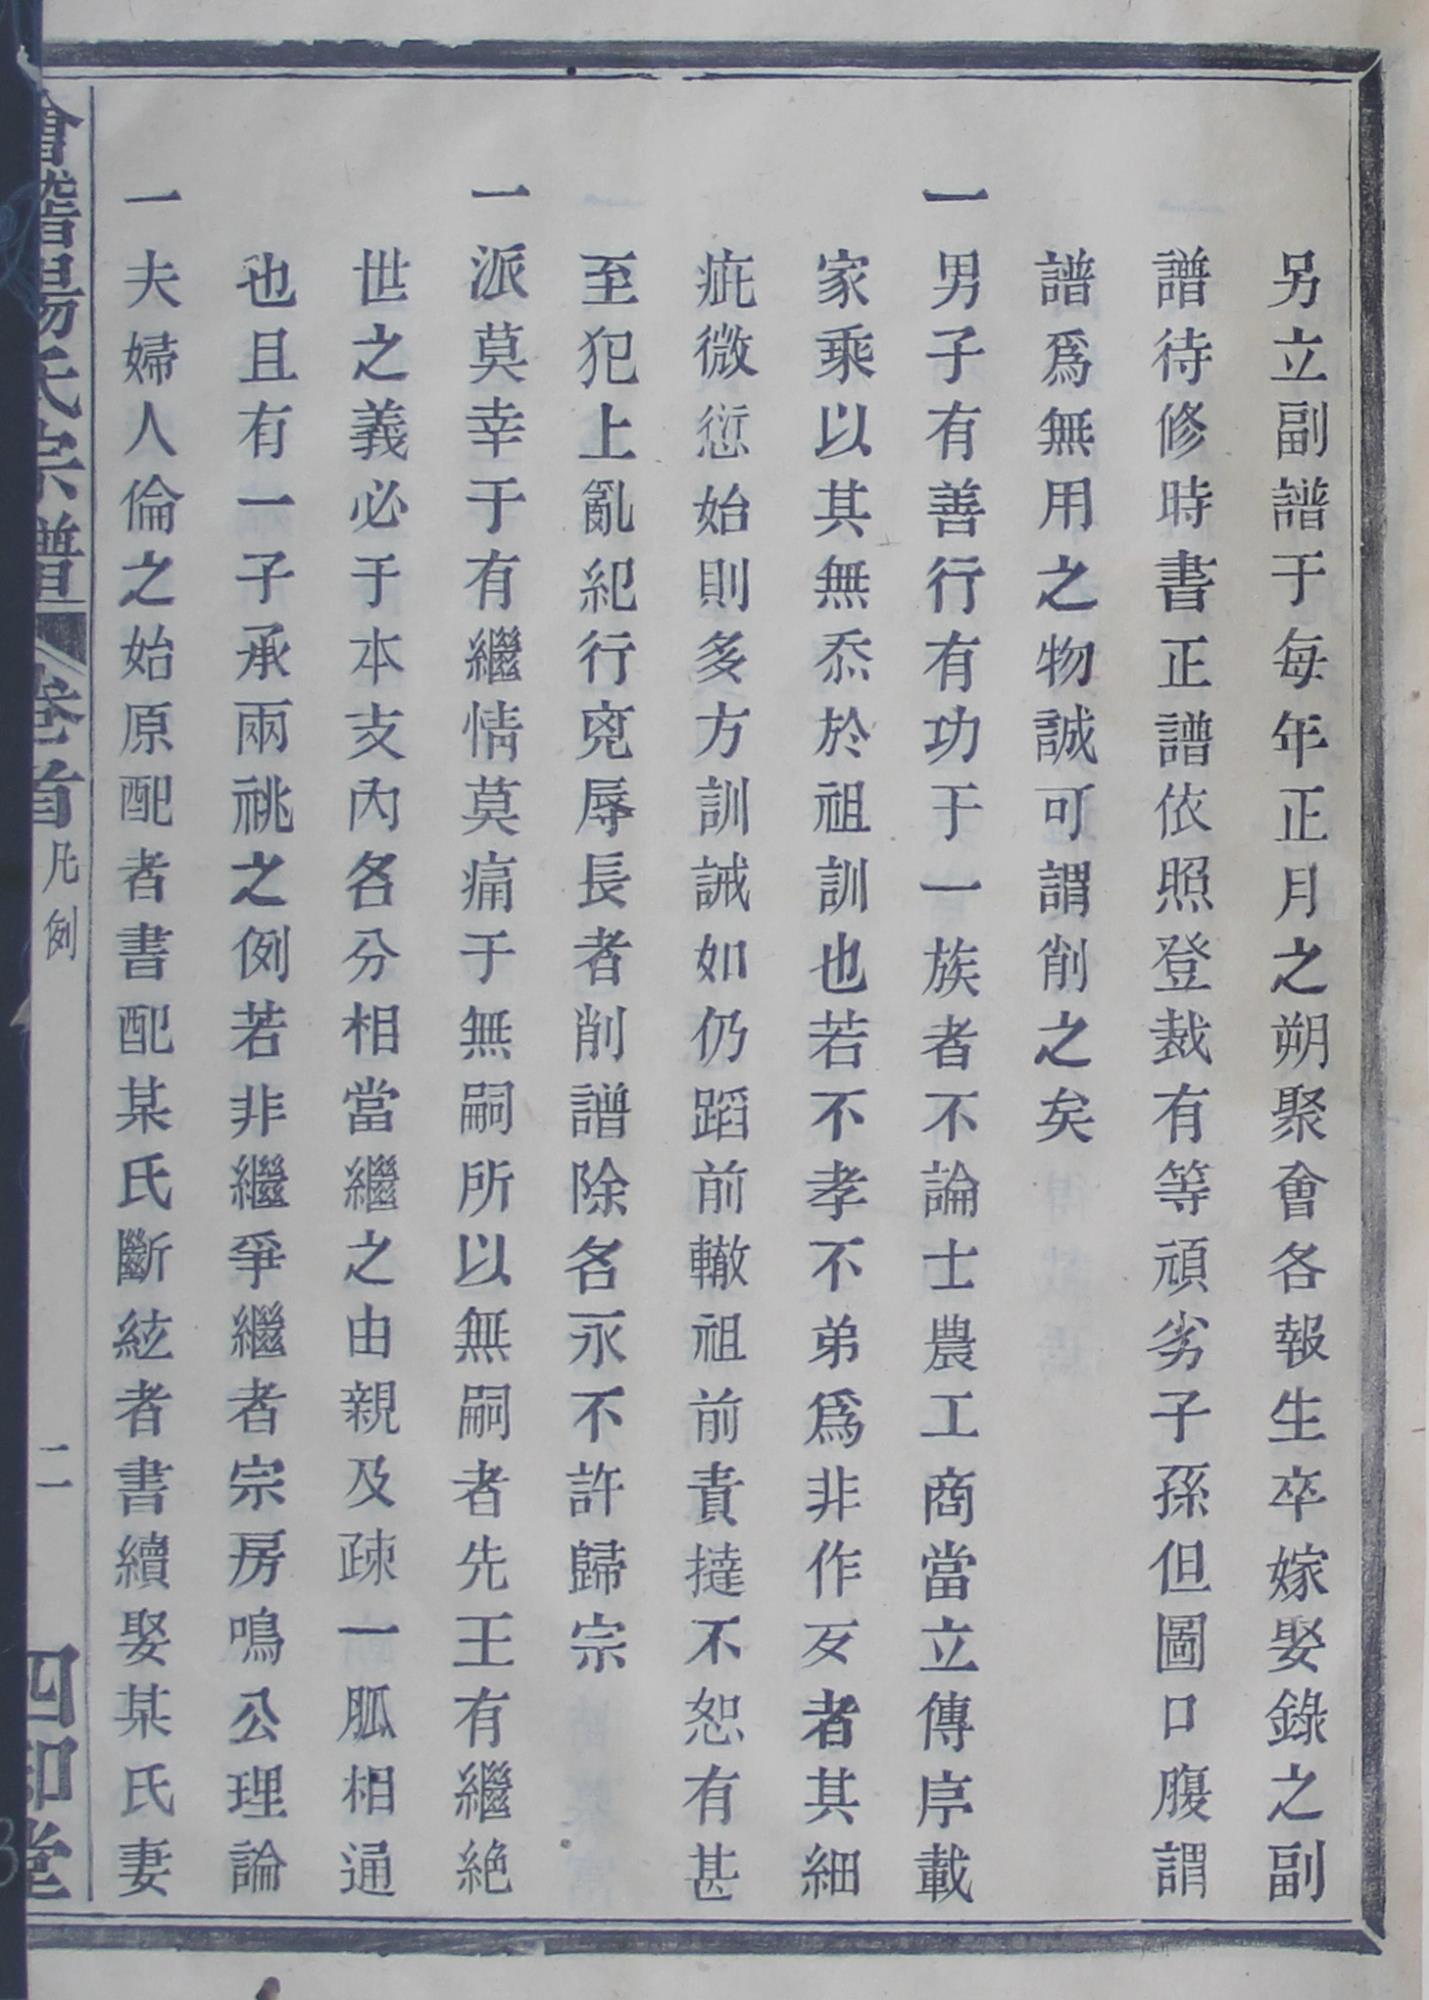 另立副譜于每年正月之朔聚會各報生卒嫁娶錄之副
譜待修時書正譜依照登裁有等頑劣子孫但圖口腹謂
譜爲無用之物誠可謂削之矣
一男子有善行有功于一族者不論士農工商當立傳序載
家乘以其無忝於祖訓也若不孝不弟爲非作歹者其細
疵微愆始則多方訓誡如仍蹈前轍祖前責撻不恕有甚
至犯上亂紀行兇辱長者削譜除名永不許歸宗
一派莫幸于有繼情莫痛于無嗣所以無嗣者先王有繼絶
世之義必于本支內各分相當繼之由親及疎一脈相通
也且有一子承兩祧之例若非繼爭繼者宗房鳴公理論
一夫婦人倫之始原配者書配某氏斷絃者書續娶某氏妻
會稽昜氏宗譜 卷首 凡例 二 四知堂